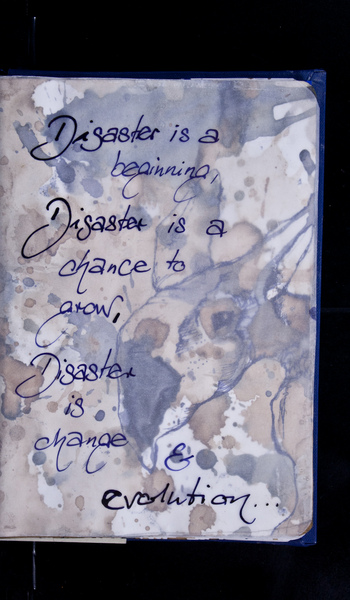 Disaster is a
beginning,
Disaster is a
chance to
grow,
Disaster
is
change
&
evolution...